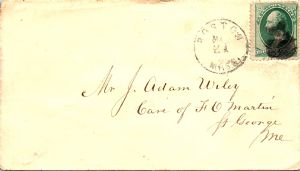 BOSTON
MASS.
Mr J. Adam Wiley
Care of F C Martin
St George
Me